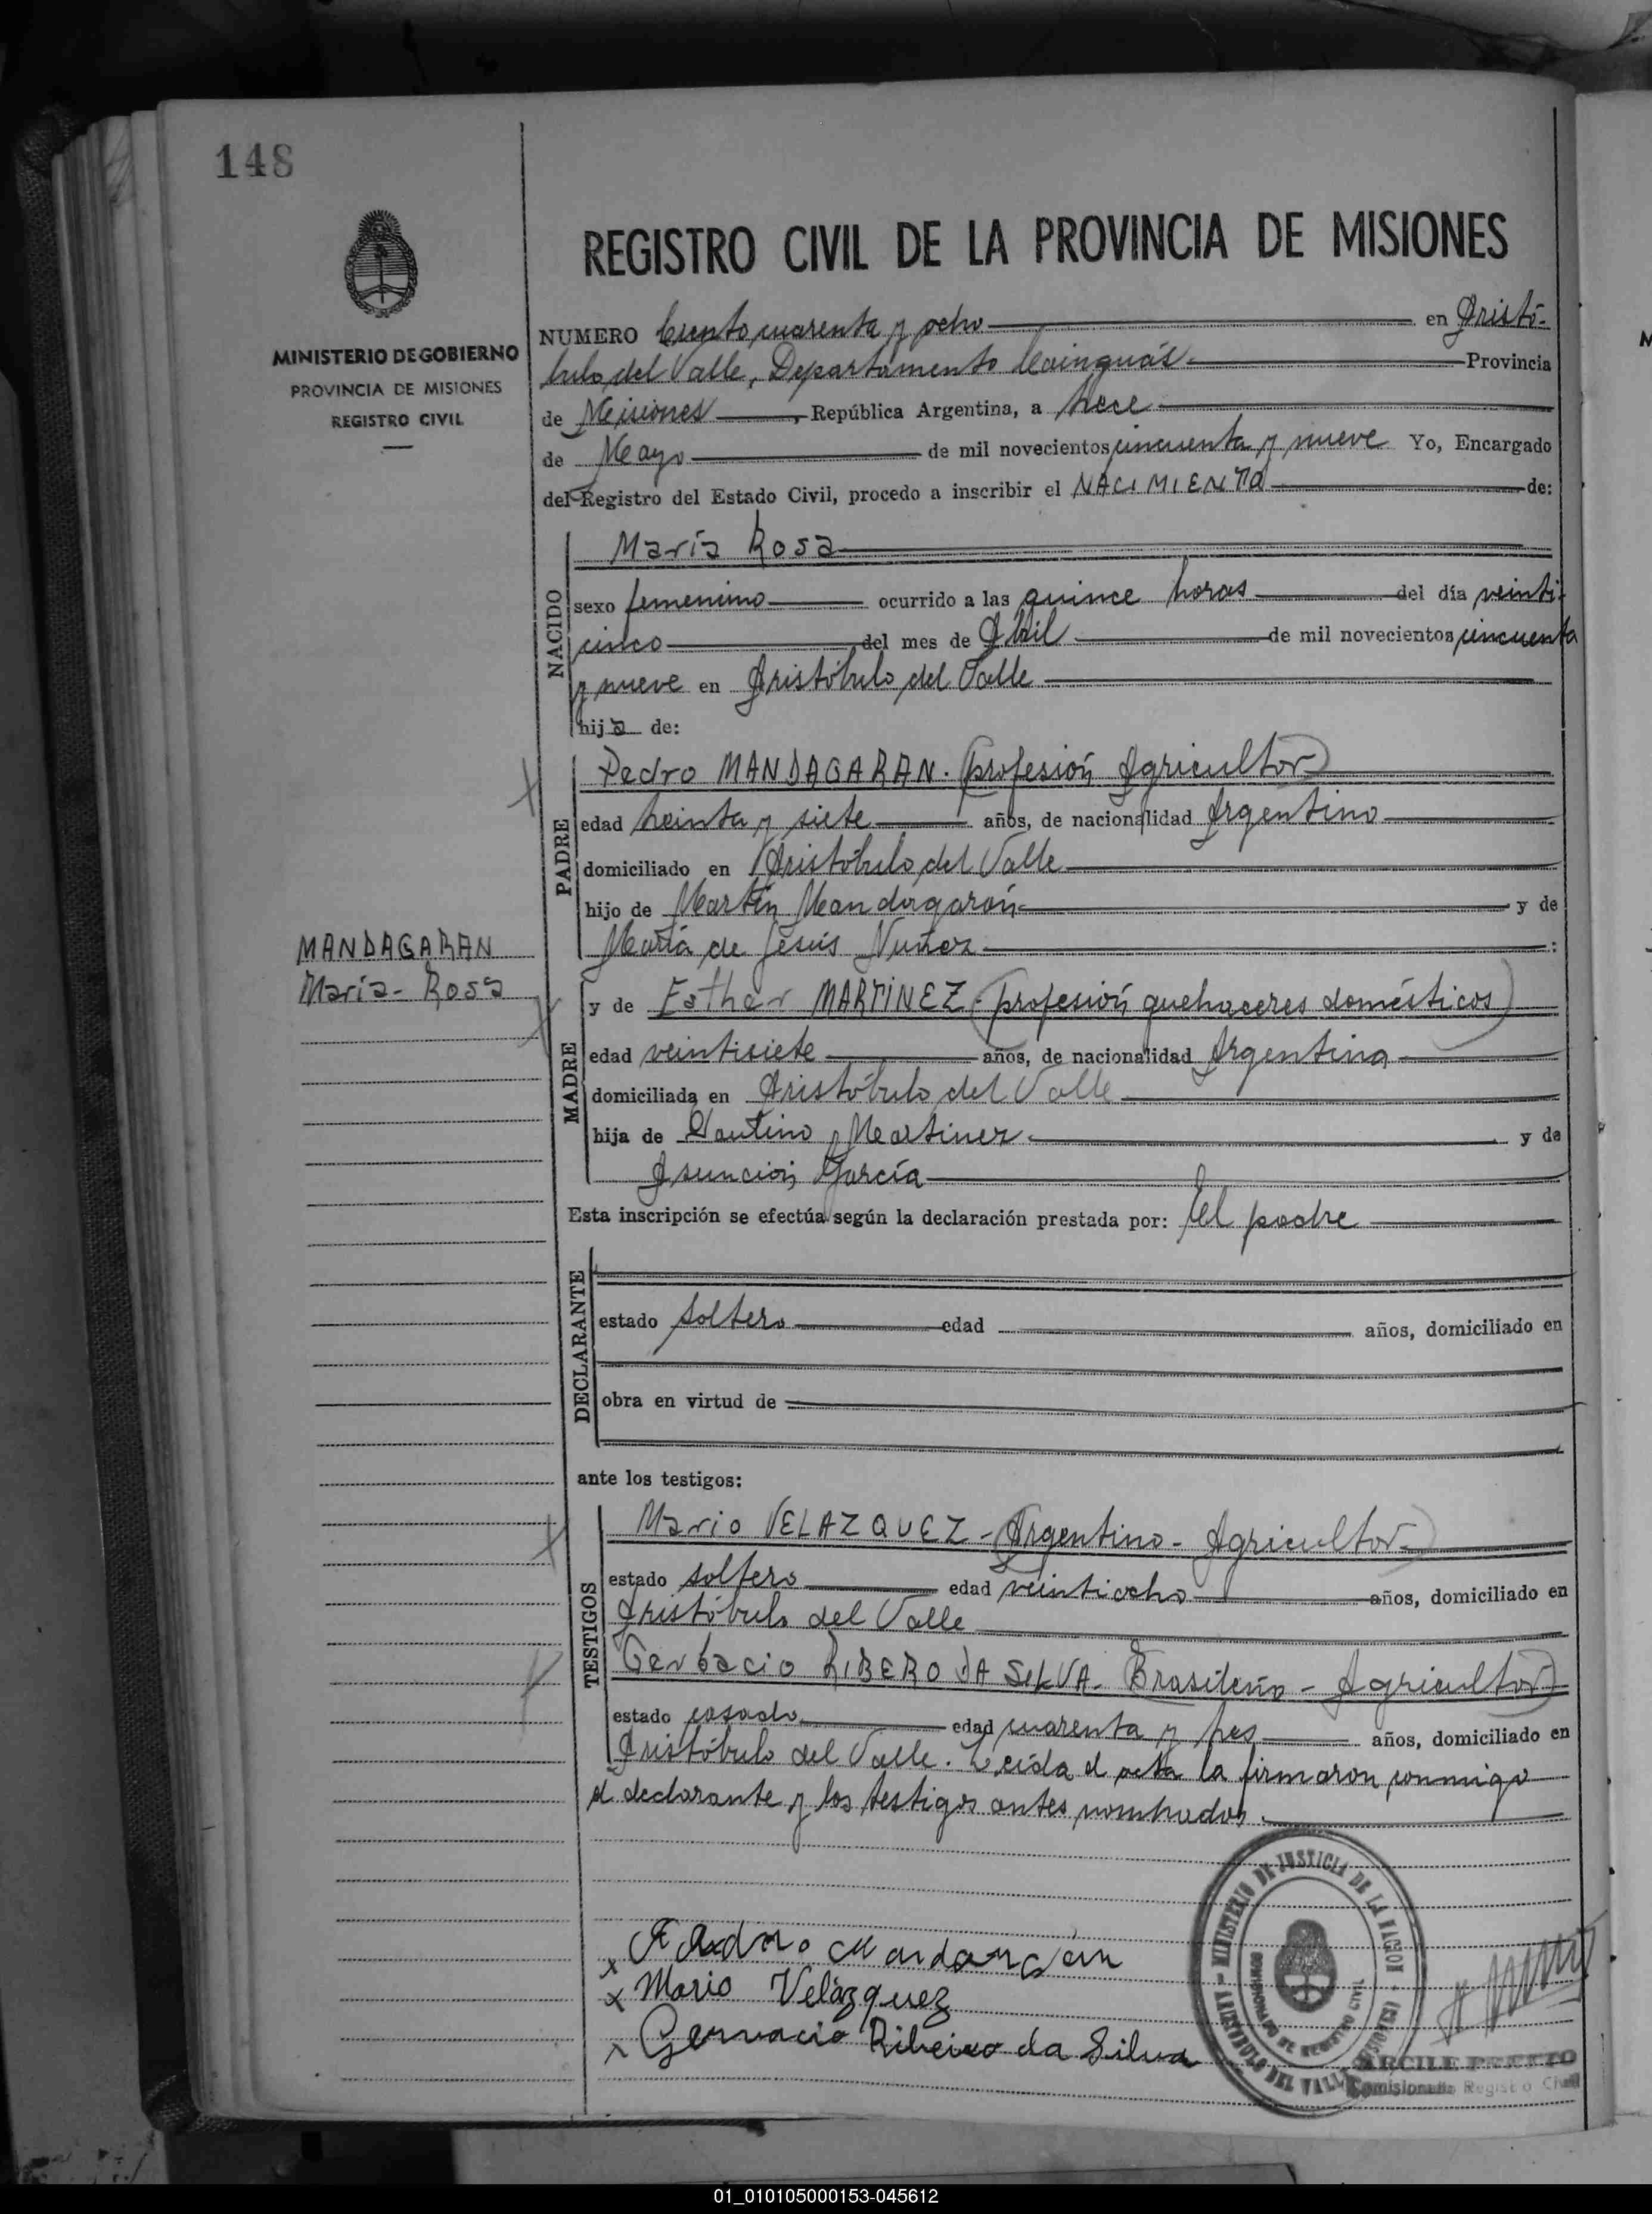 148
MINISTERIO DE GOBIERNO
PROVINCIA DE MISIONES
REGISTRO CIVIL
REGISTRO CIVIL DE LA PROVINCIA DE MISIONES
NUMERO Ciento cuarenta y ocho en Aristó-
bulo del Valle, Departamento Cainguás Provincia
de Misiones, República Argentina, a trece
de Mayo de mil novecientos cincuenta y nueve Yo, Encargado
del Registro del Estado Civil, procedo a inscribir el NACIMIENTO de:
NACIDO
María Rosa
sexo femenino ocurrido a las quince horas del día veinti-
cinco del mes de Abril de mil novecientos cincuenta
y nueve en Aristóbulo del Valle
hija de:
PADRE
Pedro MANDAGARAN. (profesión Agricultor)
edad treinta y siete años, de nacionalidad Argentino
domiciliado en Aristóbulo del Valle
hijo de Martín Mandagarán y de
María de Jesús Nuñez :
MANDAGARAN
María - Rosa
MADRE
y de Esther MARTINEZ - (profesión quehaceres domésticos)
edad veintisiete años, de nacionalidad Argentina
domiciliada en Aristóbulo del Valle
hija de Martinez y de
Asunción García
Esta inscripción se efectúa según la declaración prestada por: El padre
DECLARANTE
estado soltero edad años, domiciliado en
obra en virtud de
ante los testigos:
TESTIGOS
Mario VELAZQUEZ - (Argentino - Agricultor -)
estado soltero edad veintiocho años, domiciliado en
Aristóbulo del Valle
Gerbacio RIBERO DA SILVA - Brasileño - Agricultor)
estado casado edad cuarenta y tres años, domiciliado en
Aristóbulo del Valle. Leída el acta la firmaron conmigo
el declarante y los testigos antes nombrados.
x Mario Velázquez
x Gervacio Ribeiro da Silva
MINISTERIO DE JUSTICIA DE LA NACION
ARISTOBULO DEL VALLE
Comisionado Registro Civil
01_010105000153-045612